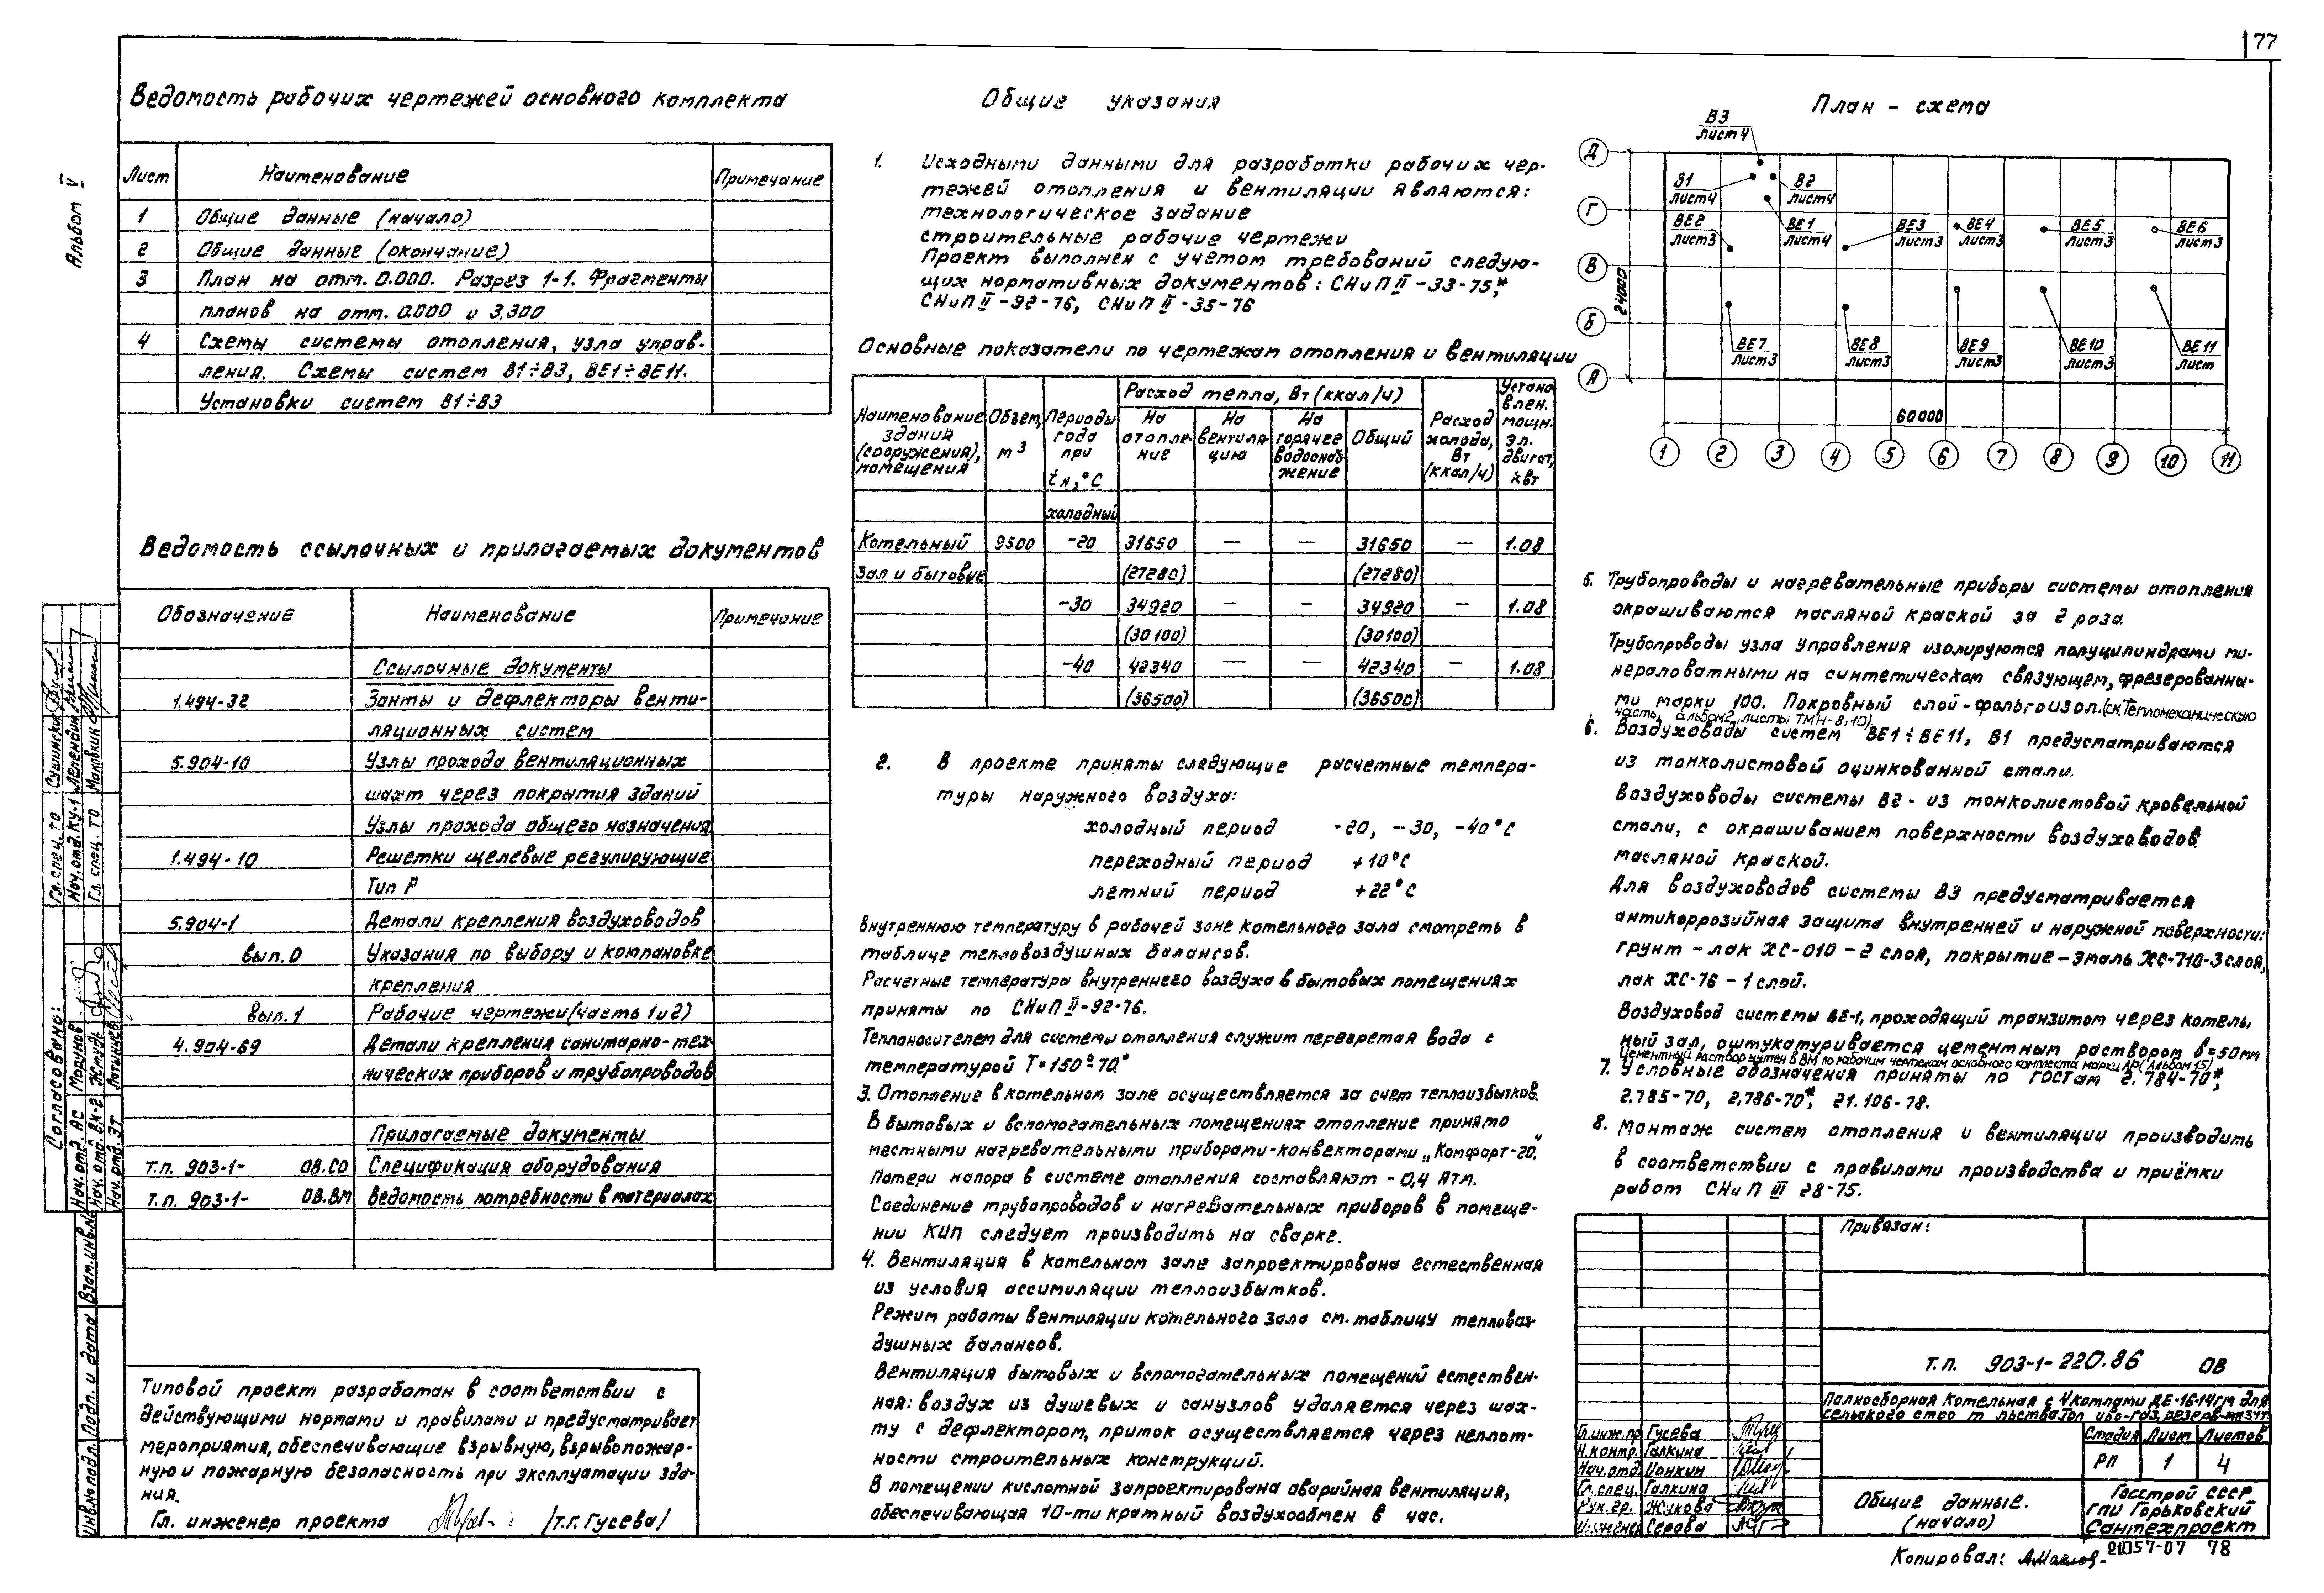 77
Альбом V
Ведомость рабочих чертежей основного комплекта
Лист Наименование Примечание
1 Общие данные (начало)
2 Общие данные (окончание)
3 План на отм. 0.000. Разрез 1-1. Фрагменты
планов на отм. 0.000 и 3.300
4 Схемы системы отопления, узла управ-
ления. Схемы систем В1÷В3, ВЕ1÷ВЕ11.
Установки систем В1÷В3
Ведомость ссылочных и прилагаемых документов
Обозначение Наименование Примечание
Ссылочные документы
1.494-32 Зонты и дефлекторы венти-
ляционных систем
5.904-10 Узлы прохода вентиляционных
шахт через покрытия зданий
Узлы прохода общего назначения
1.494-10 Решетки щелевые регулирующие
Тип Р
5.904-1 Детали крепления воздуховодов
вып. 0 Указания по выбору и компановке
крепления
вып. 1 Рабочие чертежи (часть 1 и 2)
4.904-69 Детали крепления санитарно-тех
нических приборов и трубопроводов
Прилагаемые документы
т.п. 903-1- ОВ.СО Спецификация оборудования
т.п. 903-1- ОВ.ВМ Ведомость потребности в материалах
Типовой проект разработан в соответствии с
действующими нормами и правилами и предусматривает
мероприятия, обеспечивающие взрывную, взрывопожар-
ную и пожарную безопасность при эксплуатации зда-
ния.
Гл. инженер проекта /Т.Г. Гусева/
Согласовано:
Гл. спец. ТО Сушинских
Нач. отд. КУ-1 Лепендин
Гл. спец. ТО Маковкин
Нач. отд. АС Морунов
Нач. отд. ВК-2 Жезудь
Нач. отд. ЭТ Латынцев
Инв.№подл. Подп. и дата Взам.инв.№
Общие указания
1. Исходными данными для разработки рабочих чер-
тежей отопления и вентиляции являются:
технологическое задание
строительные рабочие чертежи
Проект выполнен с учетом требований следую-
щих нормативных документов: СНиП II-33-75*,
СНиП II-92-76, СНиП II-35-76
Основные показатели по чертежам отопления и вентиляции
Наименование здания (сооружения), помещения Объем, м³ Периоды года при tн, °С Расход тепла, Вт (ккал/ч) Расход холода, Вт (ккал/ч) Установлен. мощн. эл. двигат, кВт
На отопление На вентиляцию На горячее водоснабжение Общий
холодный
Котельный 9500 -20 31650 — — 31650 — 1.08
Зал и бытовые (27280) (27280)
-30 34920 — — 34920 — 1.08
(30100) (30100)
-40 42340 — — 42340 — 1.08
(36500) (36500)
2. В проекте приняты следующие расчетные темпера-
туры наружного воздуха:
холодный период -20, -30, -40°С
переходный период +10°С
летний период +22°С
Внутреннюю температуру в рабочей зоне котельного зала смотреть в
таблице тепловоздушных балансов.
Расчетные температуры внутреннего воздуха в бытовых помещениях
приняты по СНиП II-92-76.
Теплоносителем для системы отопления служит перегретая вода с
температурой Т=150°-70°
3. Отопление в котельном зале осуществляется за счет теплоизбытков.
В бытовых и вспомогательных помещениях отопление принято
местными нагревательными приборами-конвекторами „Комфорт-20".
Потери напора в системе отопления составляют - 0,4 Атм.
Соединение трубопроводов и нагревательных приборов в помеще-
нии КИП следует производить на сварке.
4. Вентиляция в котельном зале запроектирована естественная
из условия ассимиляции теплоизбытков.
Режим работы вентиляции котельного зала см. таблицу тепловоз-
душных балансов.
Вентиляция бытовых и вспомогательных помещений естествен-
ная: воздух из душевых и санузлов удаляется через шах-
ту с дефлектором, приток осуществляется через неплот-
ности строительных конструкций.
В помещении кислотной запроектирована аварийная вентиляция,
обеспечивающая 10-ти кратный воздухообмен в час.
План - схема
В3 лист 4
В1 лист 4
В2 лист 4
ВЕ2 лист 3
ВЕ1 лист 4
ВЕ3 лист 3
ВЕ4 лист 3
ВЕ5 лист 3
ВЕ6 лист 3
ВЕ7 лист 3
ВЕ8 лист 3
ВЕ9 лист 3
ВЕ10 лист 3
ВЕ11 лист
Д
Г
В
Б
А
24000
60000
1 2 3 4 5 6 7 8 9 10 11
5. Трубопроводы и нагревательные приборы системы отопления
окрашиваются масляной краской за 2 раза.
Трубопроводы узла управления изолируются полуцилиндрами ми-
нераловатными на синтетическом связующем, фрезерованны-
ми марки 100. Покровный слой-фольгоизол. (см. тепломеханическую
часть, альбом 2, листы ТМН-8,10)
6. Воздуховоды систем ВЕ1÷ВЕ11, В1 предусматриваются
из тонколистовой оцинкованной стали.
Воздуховоды системы В2 - из тонколистовой кровельной
стали, с окрашиванием поверхности воздуховодов
масляной краской.
Для воздуховодов системы В3 предусматривается
антикоррозийная защита внутренней и наружной поверхности:
грунт - лак ХС-010 - 2 слоя, покрытие - эмаль ХС-710-3 слоя,
лак ХС-76 - 1 слой.
Воздуховод системы ВЕ-1, проходящий транзитом через котель-
ный зал, оштукатуривается цементным раствором δ=50мм
Цементный раствор учтен в ВМ по рабочим чертежам основного комплекта марки АР (Альбом 15)
7. Условные обозначения приняты по ГОСТам 2.784-70*,
2.785-70, 2.786-70*, 21.106-78.
8. Монтаж систем отопления и вентиляции производить
в соответствии с правилами производства и приёмки
работ СНиП III 28-75.
Привязан:
т.п. 903-1-220.86 ОВ
Полносборная котельная с 4 котлами ДЕ-16-14ГМ для
сельского строительства. Топливо-газ, резерв-мазут
Стадия Лист Листов
РП 1 4
Гл.инж.пр Гусева
Н.контр. Галкина
Нач.отд. Ионкин
Гл.спец. Галкина
Рук.гр. Жукова
Инженер Серова
Общие данные.
(начало)
Госстрой СССР
ГПИ Горьковский
Сантехпроект
Копировал:
21057-07 78